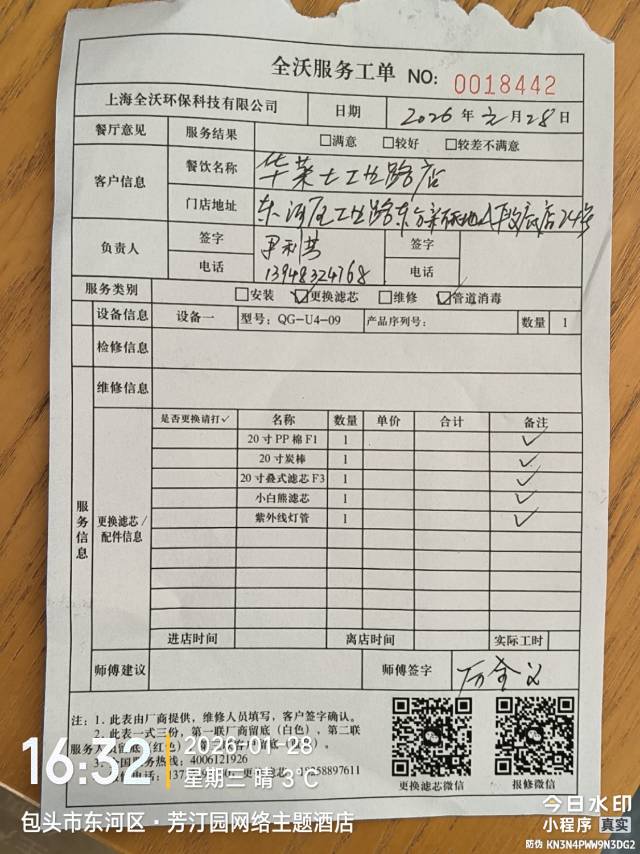 全沃服务工单 NO: 0018442
上海全沃环保科技有限公司 日期 2026年元月28日
餐厅意见 服务结果 □满意 □较好 □较差不满意
客户信息 餐饮名称 华莱士工业路店
门店地址 东河区工业路东方
负责人 签字 签字
电话 13948324768 电话
服务类别 □安装 ☑更换滤芯 □维修 ☑管道消毒
设备信息 设备一 型号: QG-U4-09 产品序列号: 数量 1
检修信息
维修信息
服务信息
更换滤芯/配件信息
是否更换请打✓ 名称 数量 单价 合计 备注
20寸PP棉F1 1 ✓
20寸炭棒 1 ✓
20寸叠式滤芯F3 1 ✓
小白熊滤芯 1 ✓
紫外线灯管 1 ✓
进店时间 离店时间 实际工时
师傅建议 师傅签字
注: 1. 此表由厂商提供，维修人员填写，客户签字确认。
2. 此表一式三份，第一联厂商留底（白色），第二联
服务人员留底（红色）
4006121926
18258897611
更换滤芯微信 报修微信
16:32 2026-01-28
星期三 晴 3℃
包头市东河区·芳汀园网络主题酒店
今日水印
小程序 真实
防伪 KN3N4PWW9N3DG2